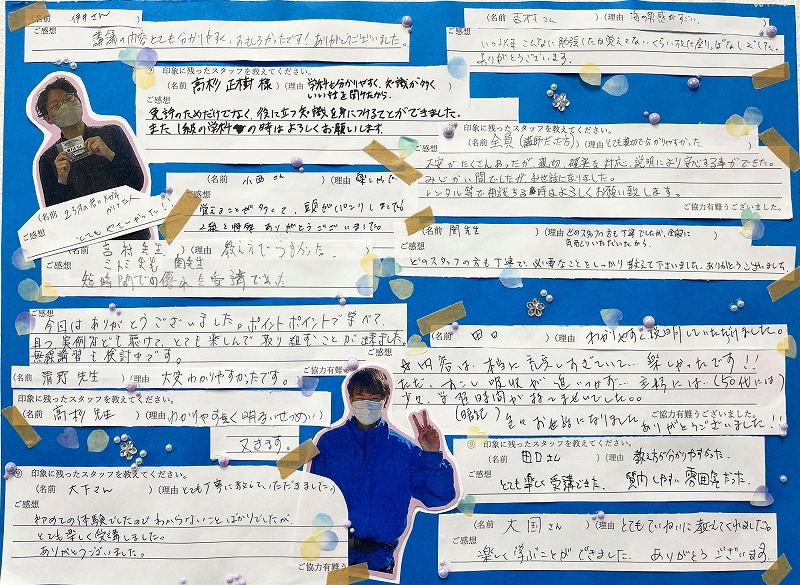 (名前 伊井さん
ご感想
講議の内容とても分かりやすく、おもしろかったです！ありがとうございました。
(名前 吉村さん )(理由 海の男感がすごい。
ご感想
ありがとうございます。
⑨ 印象に残ったスタッフを教えてください。
(名前 高杉 正樹 様 )(理由 学科も分かりやすく、知識が多く
いい話を聞けたから。
ご感想
免許のためだけでなく、役に立つ知識を身につけることができました。
また1級の学科の時はよろしくお願いします。
印象に残ったスタッフを教えてください。
(名前 全員(講師だった方) )(理由 とても親切で分かりやすかった
ご感想
大変がたくさんあったが親切、確実な対応、説明により安心する事ができた。
みじかい間でしたがお世話になりました。
レンタル等で相談する時はよろしくお願い致します。
ご協力ありがとうございました。
(名前 小西さん )(理由
ご感想
覚えることが多くて、頭がパンクしました
2級と特殊 ありがとうございました。
(名前
ご感想
とてもやさしかった！
(名前 関先生 )(理由 どのスタッフの方も丁寧でしたが、全般に
気配りいただいたから。
ご感想
どのスタッフの方も丁寧で、必要なことをしっかり教えて下さいました。ありがとうございました。
(名前 吉村先生 )(理由 教え方がうまかった。
ご感想
関先生
短時間での
ご感想
今回はありがとうございました。ポイントポイントで学べて、
且つ、実例なども聴けて、とても楽しんで取り組むことが出来ました。
無線講習も検討中です。
ご協力有難う
(名前 清野先生 )(理由 大変わかりやすかったです。
(名前 田口 )(理由 わかりやすく説明していただけました。
ご感想
楽しかったです！！
学習時間が
(暗記) 色々お世話になりました
ご協力有難うございました。
ありがとうございました！！
印象に残ったスタッフを教えてください。
(名前 高杉 先生 )(理由 わかりやすく 明るいせつめい
ご感想
又きます。
⑨ 印象に残ったスタッフを教えてください。
(名前 田口さん )(理由 教え方が分かりやすかった。
ご感想
とても楽しく受講できた。 質問しやすい雰囲気だった。
⑨ 印象に残ったスタッフを教えてください。
(名前 木下さん )(理由 とても丁寧に教えていただきました。)
ご感想
初めての体験でしたのでわからないことばかりでしたが、
とても楽しく受講しました。
ありがとうございました。
ご協力有難う
(名前 大国さん )(理由 とてもていねいに教えてくれました。
ご感想
楽しく学ぶことができました。 ありがとうございます。